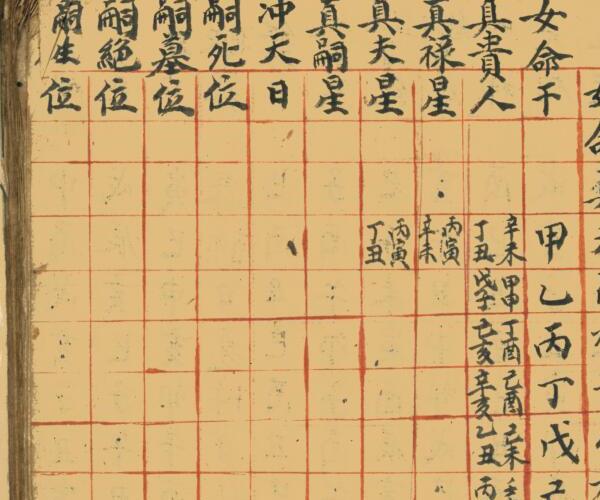 女命
女命干甲乙丙丁戊
真貴人
辛未甲申丁酉己酉己未
丁丑戊子己亥辛亥乙丑丙
真祿星
丙寅
辛未
真夫星
丙寅
丁丑
真嗣星
冲天日
嗣死位
嗣墓位
嗣絕位
嗣生位